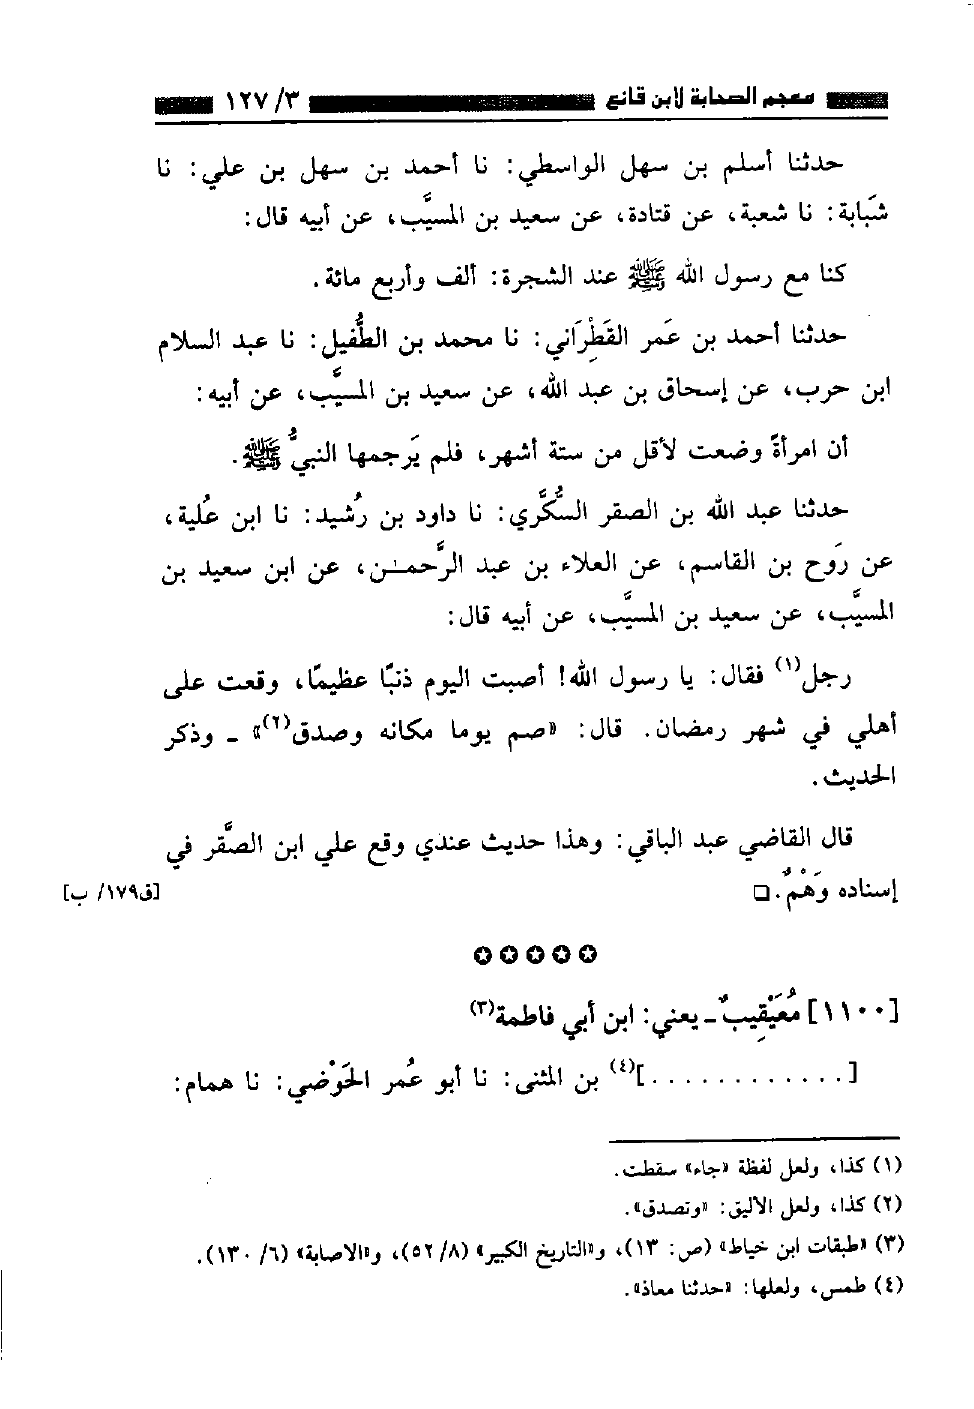 معجم الصحابة لابن قانع ٣/ ١٢٧
حدثنا أسلم بن سهل الواسطي: نا أحمد بن سهل بن علي: نا
شَبَابة: نا شعبة، عن قتادة، عن سعيد بن المسيَّب، عن أبيه قال:
كنا مع رسول الله ﷺ عند الشجرة: ألف وأربع مائة.
حدثنا أحمد بن عَمر القَطِرَاني: نا محمد بن الطُّفيل: نا عبد السلام
ابن حرب، عن إسحاق بن عبد الله، عن سعيد بن المسيَّب، عن أبيه:
أن امرأةً وضعت لأقل من ستة أشهر، فلم يَرجمها النبيُّ ﷺ.
حدثنا عبد الله بن الصقر السُّكَّري: نا داود بن رُشيد: نا ابن عُلية،
عن رَوح بن القاسم، عن العلاء بن عبد الرَّحمـٰن، عن ابن سعيد بن
المسيَّب، عن سعيد بن المسيَّب، عن أبيه قال:
رجل(١) فقال: يا رسول الله! أصبت اليوم ذنبًا عظيمًا، وقعت على
أهلي في شهر رمضان. قال: «صم يوما مكانه وصدق(٢)» ـ وذكر
الحديث.
قال القاضي عبد الباقي: وهذا حديث عندي وقع علي ابن الصَّقر في
إسناده وَهْمٌ. □ [ق١٧٩/ ب]
[١١٠٠] مُعَيْقِيبٌ ـ يعني: ابن أبي فاطمة(٣)
[. . . . . . . . . . . .](٤) بن المثنى: نا أبو عُمر الحَوْضي: نا همام:
(١) كذا، ولعل لفظة «جاء» سقطت.
(٢) كذا، ولعل الأليق: «وتصدق».
(٣) «طبقات ابن خياط» (ص: ١٣)، و«التاريخ الكبير» (٨/ ٥٢)، و«الاصابة» (٦/ ١٣٠).
(٤) طمس، ولعلها: «حدثنا معاذ».